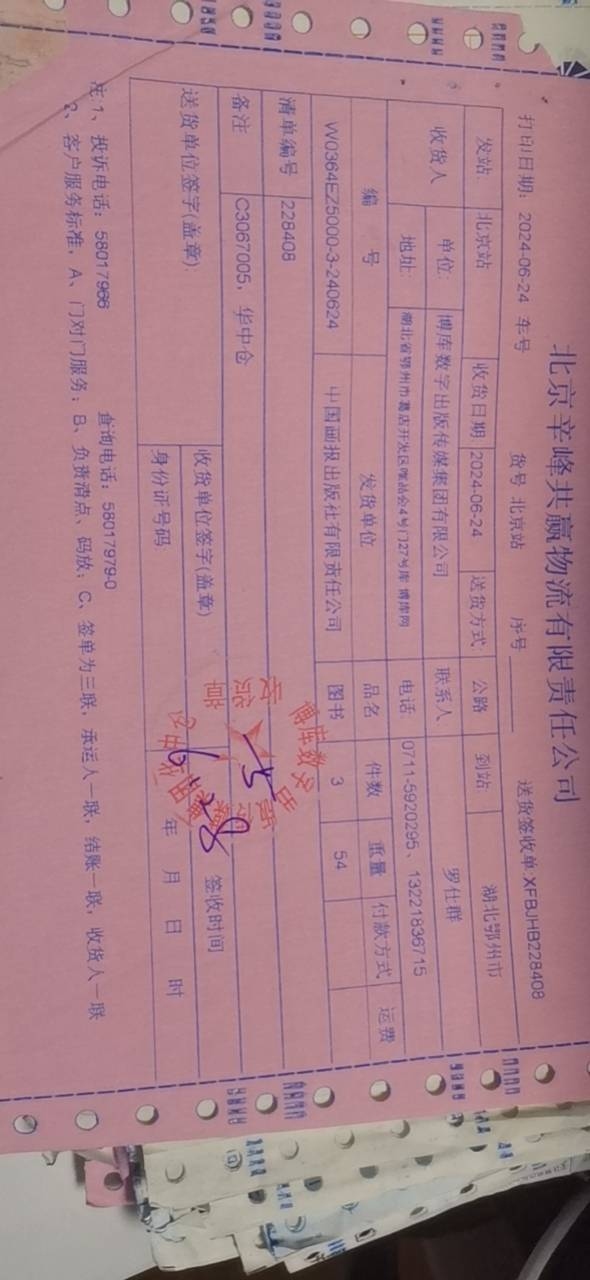 北京辛峰共赢物流有限责任公司
送货签收单:XFBJHB228408
打印日期: 2024-06-24 车号 货号 北京站 序号
发站: 北京站 收货日期 2024-06-24 送货方式: 公路 到站: 湖北鄂州市
收货人 单位: 博库数字出版传媒集团有限公司 联系人 罗仕群
地址: 湖北省鄂州市葛店开发区唯品会4号门27号库 博库网 电话: 0711-5920295、13221836715
编号 发货单位 品名 件数 重量 付款方式 运费
W0364EZ5000-3-240624 中国画报出版社有限责任公司 图书 3 54
清单编号 228408
备注 C3067005, 华中仓
送货单位签字(盖章): 收货单位签字(盖章) 签收时间
身份证号码 年 月 日 时
注:1、投诉电话: 58017966 查询电话: 58017979-0
2、客户服务标准, A、门对门服务; B、负责清点、码放; C、签单为三联, 承运人一联, 结账一联, 收货人一联
博库数
收货
章